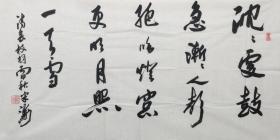 沈々更鼓
急漸々人聲
絶吹燈窗
更明月照
一天雪
清袁枚詩